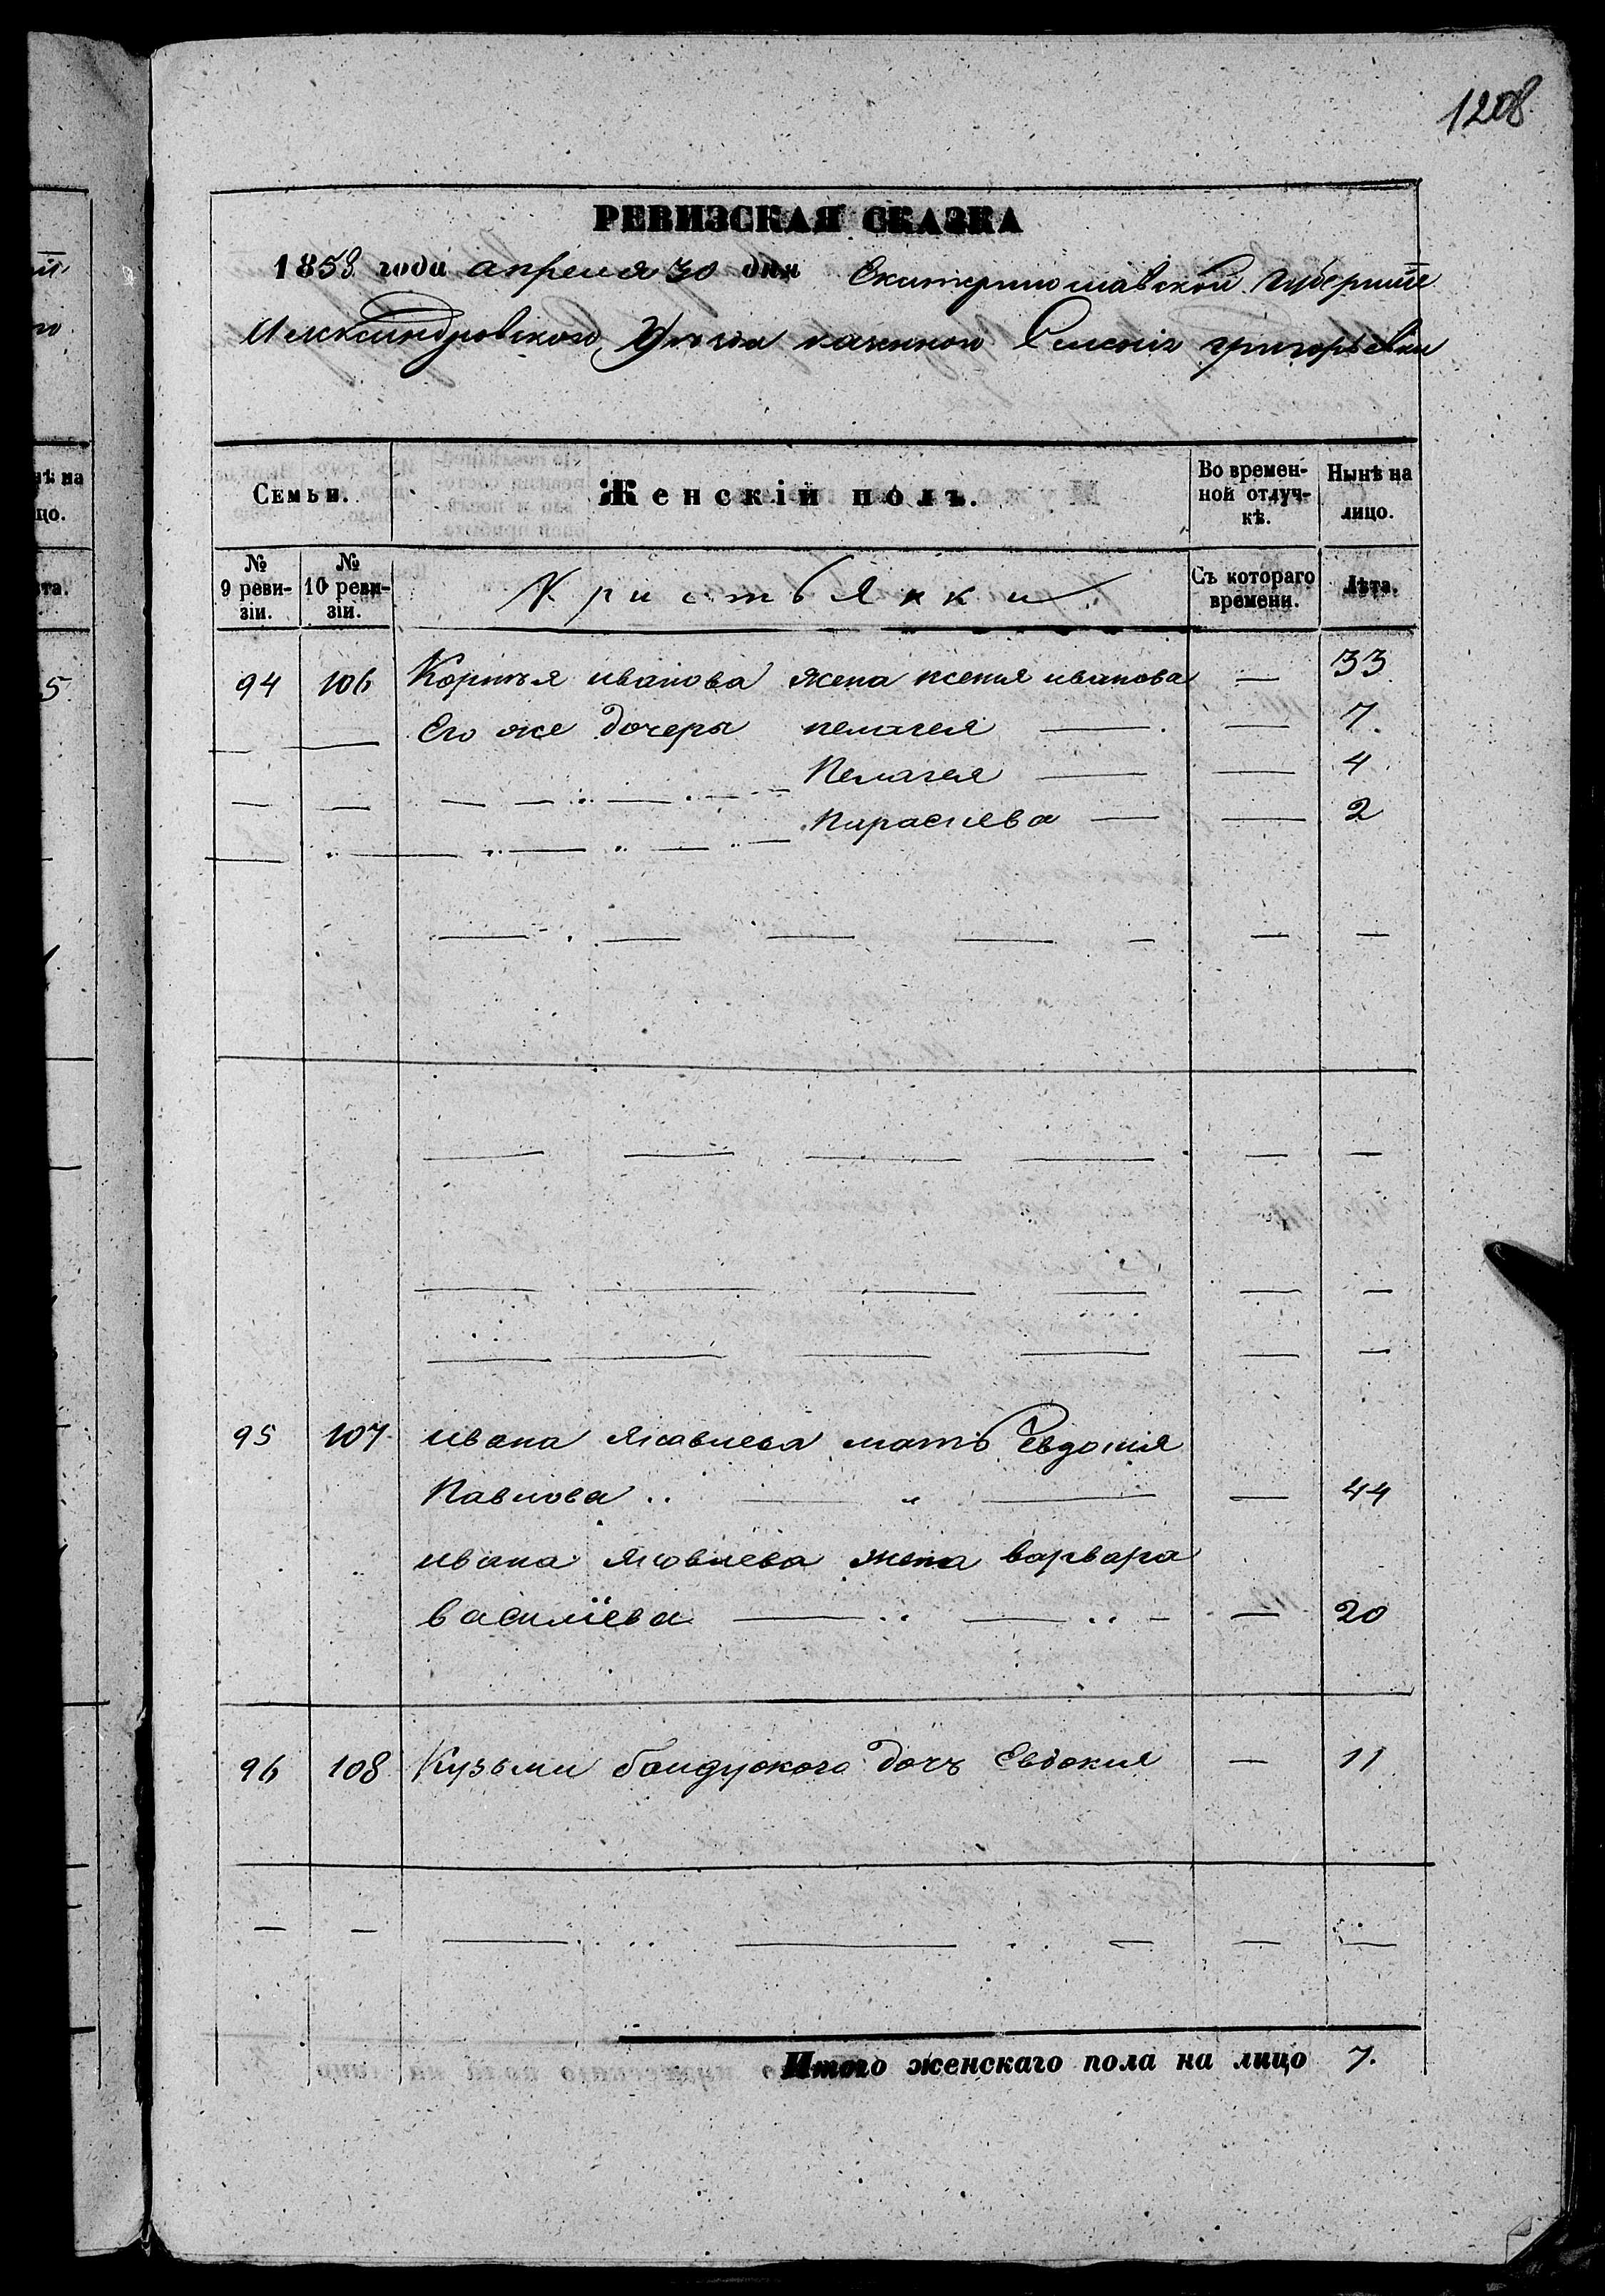 1208
РЕВИЗСКАЯ СКАЗКА
1858 года апреля 30 дня Екатеринославской Губернии
Александровского Уезда казенного Селения григорьевки
Семьи. Женскій полъ. Во временной отлучкѣ. Нынѣ на лицо.
№ 9 ревизіи. № 10 ревизіи. Кристьянки Съ котораго времени. Лѣта.
94 106 Корнѣя иванова жена ксенья иванова — 33
— — Его же дочеры пелагея — — 7.
— — — — Пелагея — — 4
— — — — Параскева — — 2
95 107 ивана Яковлева мать Евдокия
Павлова — — — 44
ивана Яковлева жена варвара
василіева — — — 20
96 108 Кузьми бандуского дочь Евдокия — 11
Итого женскаго пола на лицо 7.